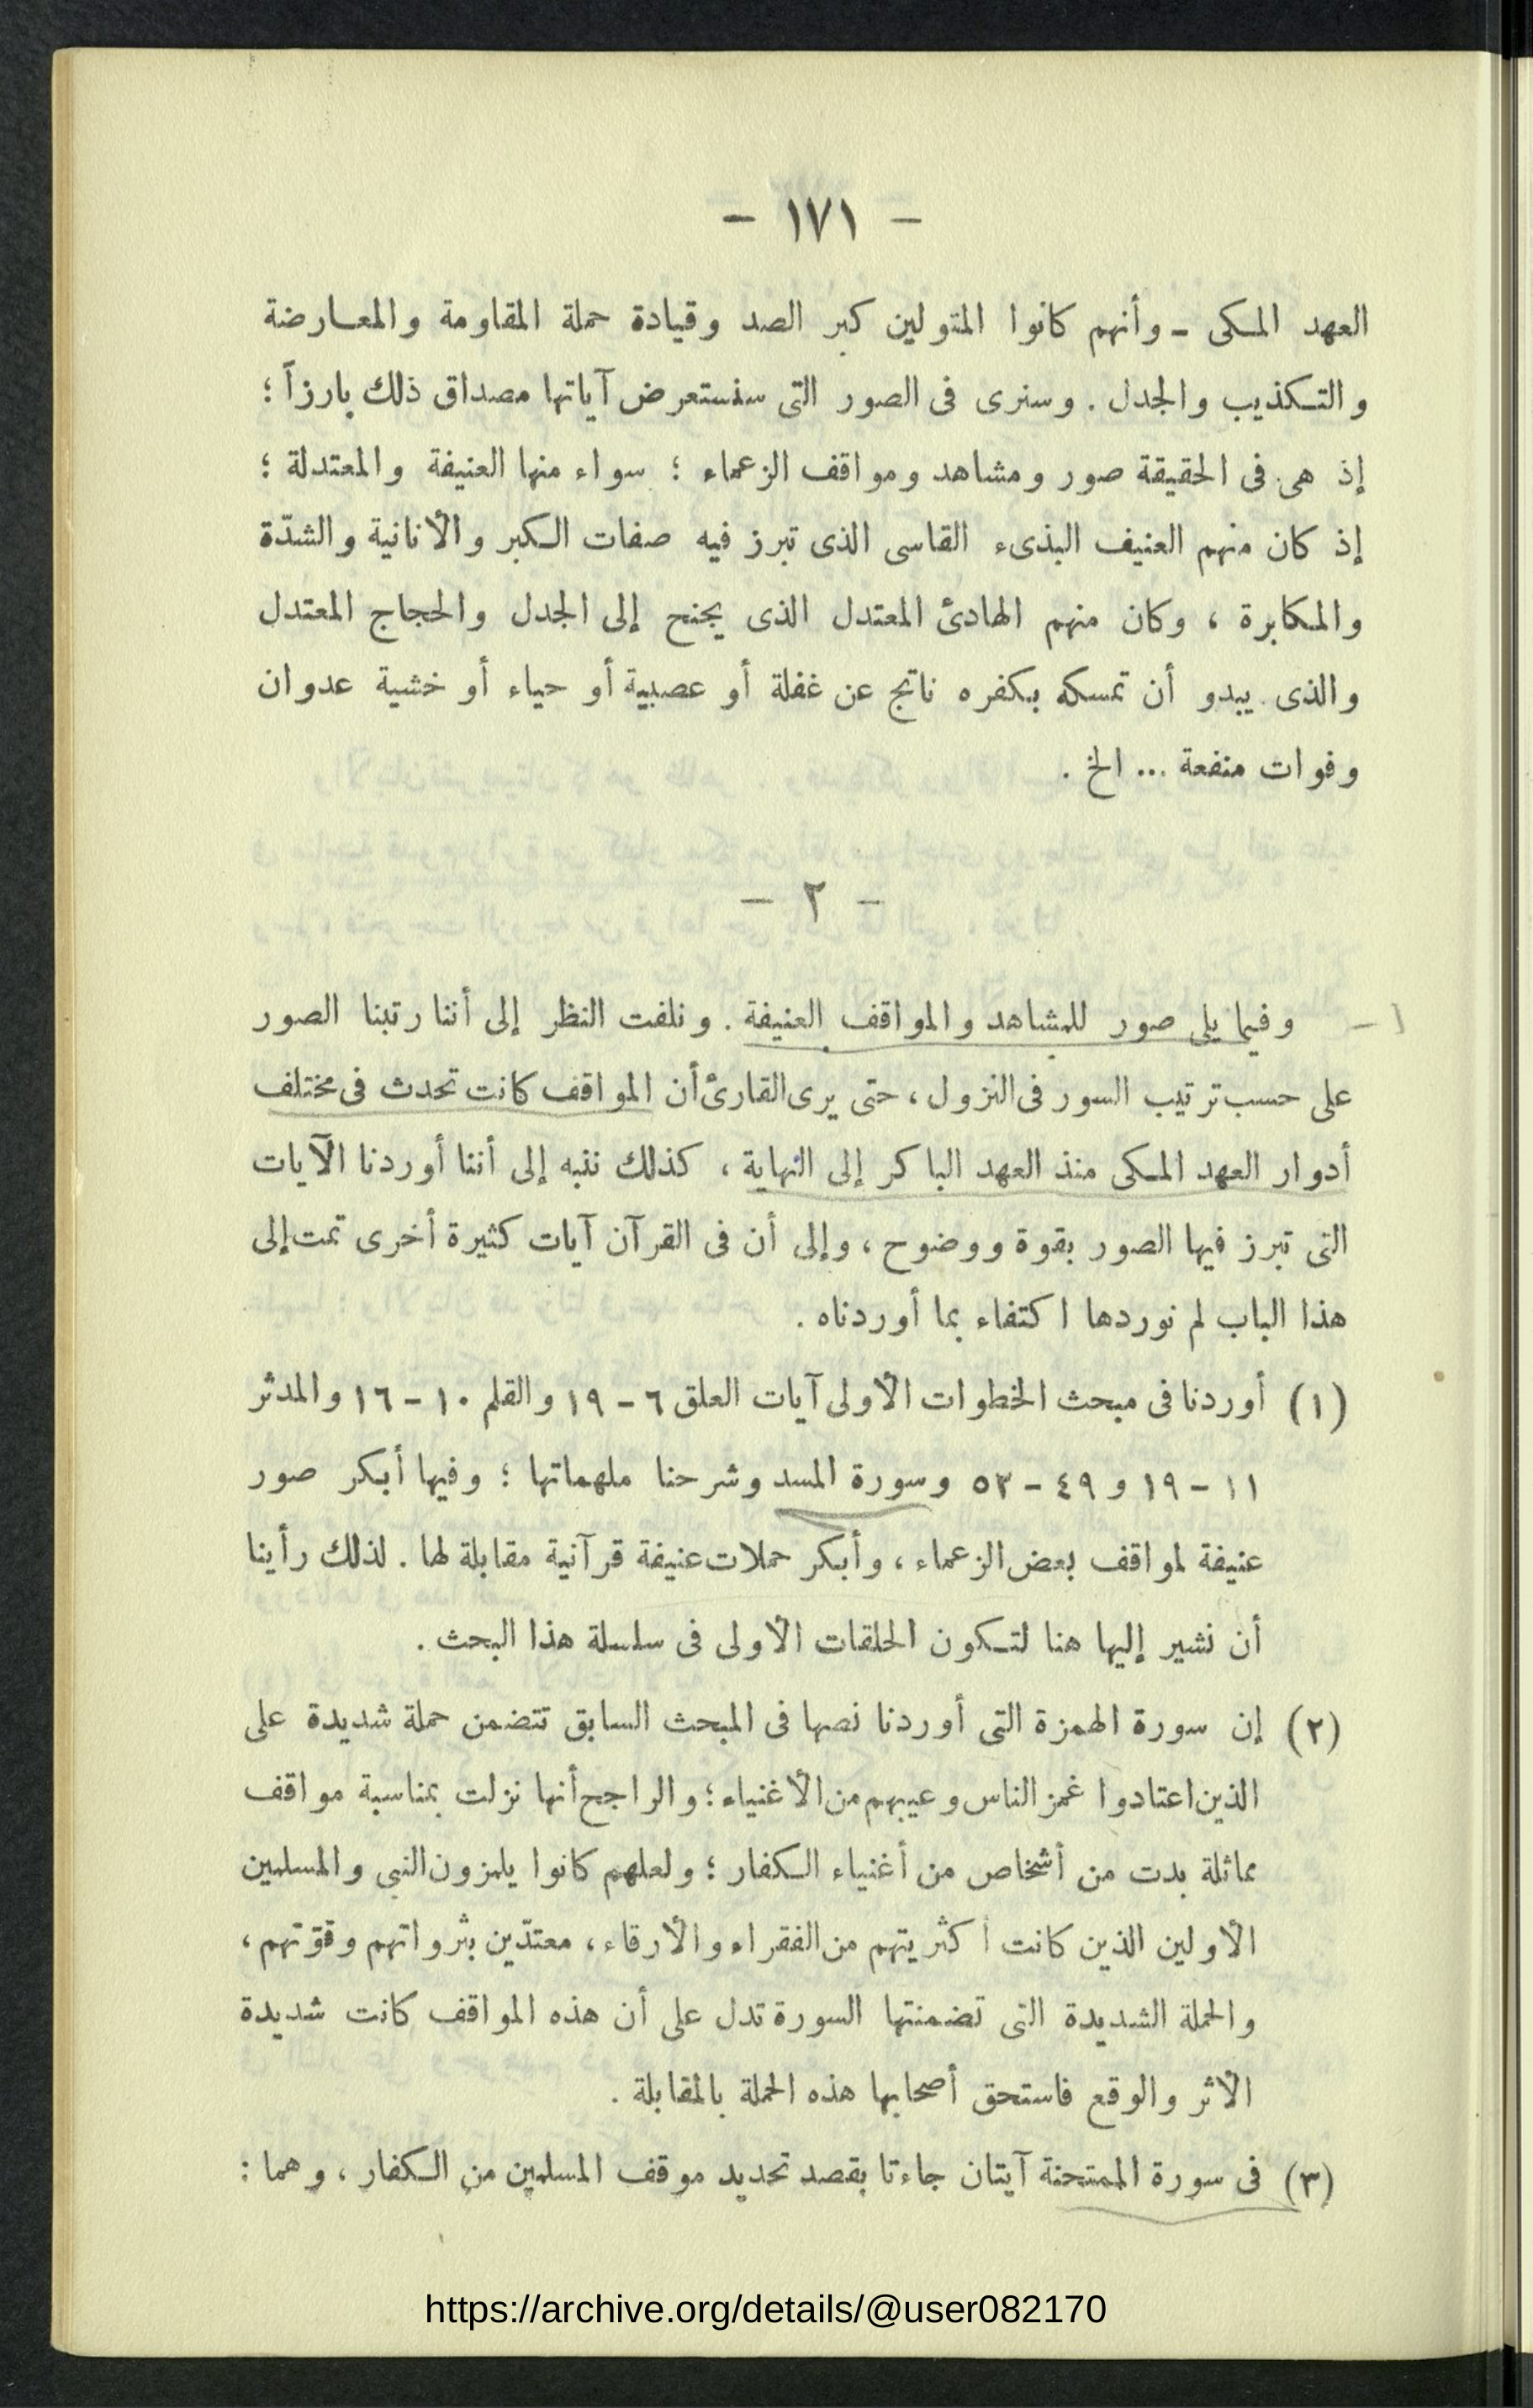 – ١٧١ –
العهد المكى – وأنهم كانوا المتولين كبر الصد وقيادة حملة المقاومة والمعارضة
والتكذيب والجدل . وسنرى فى الصور التى سنستعرض آياتها مصداق ذلك بارزاً ؛
إذ هى فى الحقيقة صور ومشاهد ومواقف الزعماء ؛ سواء منها العنيفة والمعتدلة ؛
إذ كان منهم العنيف البذىء القاسى الذى تبرز فيه صفات الكبر والأنانية والشدّة
والمكابرة ، وكان منهم الهادئ المعتدل الذى يجنح إلى الجدل والحجاج المعتدل
والذى يبدو أن تمسكه بكفره ناتج عن غفلة أو عصبية أو حياء أو خشية عدوان
وفوات منفعة ... الخ .
– ٢ –
١ – وفيما يلى صور للمشاهد والمواقف العنيفة . ونلفت النظر إلى أننا رتبنا الصور
على حسب ترتيب السور فى النزول ، حتى يرى القارئ أن المواقف كانت تحدث فى مختلف
أدوار العهد المكى منذ العهد الباكر إلى النهاية ، كذلك ننبه إلى أننا أوردنا الآيات
التى تبرز فيها الصور بقوة ووضوح ، وإلى أن فى القرآن آيات كثيرة أخرى تمت إلى
هذا الباب لم نوردها اكتفاء بما أوردناه .
(١) أوردنا فى مبحث الخطوات الأولى آيات العلق ٦ – ١٩ والقلم ١٠ – ١٦ والمدثر
١١ – ١٩ و ٤٩ – ٥٣ وسورة المسد وشرحنا ملهماتها ؛ وفيها أبكر صور
عنيفة لمواقف بعض الزعماء ، وأبكر حملات عنيفة قرآنية مقابلة لها . لذلك رأينا
أن نشير إليها هنا لتكون الحلقات الأولى فى سلسلة هذا البحث .
(٢) إن سورة الهمزة التى أوردنا نصها فى المبحث السابق تتضمن حملة شديدة على
الذين اعتادوا غمز الناس وعيبهم من الأغنياء ؛ والراجح أنها نزلت بمناسبة مواقف
مماثلة بدت من أشخاص من أغنياء الكفار ؛ ولعلهم كانوا يلمزون النبى والمسلمين
الأولين الذين كانت أكثريتهم من الفقراء والأرقاء ، معتدّين بثرواتهم وقوّتهم ،
والحملة الشديدة التى تضمنتها السورة تدل على أن هذه المواقف كانت شديدة
الأثر والوقع فاستحق أصحابها هذه الحملة بالمقابلة .
(٣) فى سورة الممتحنة آيتان جاءتا بقصد تحديد موقف المسلمين من الكفار ، وهما :
https://archive.org/details/@user082170